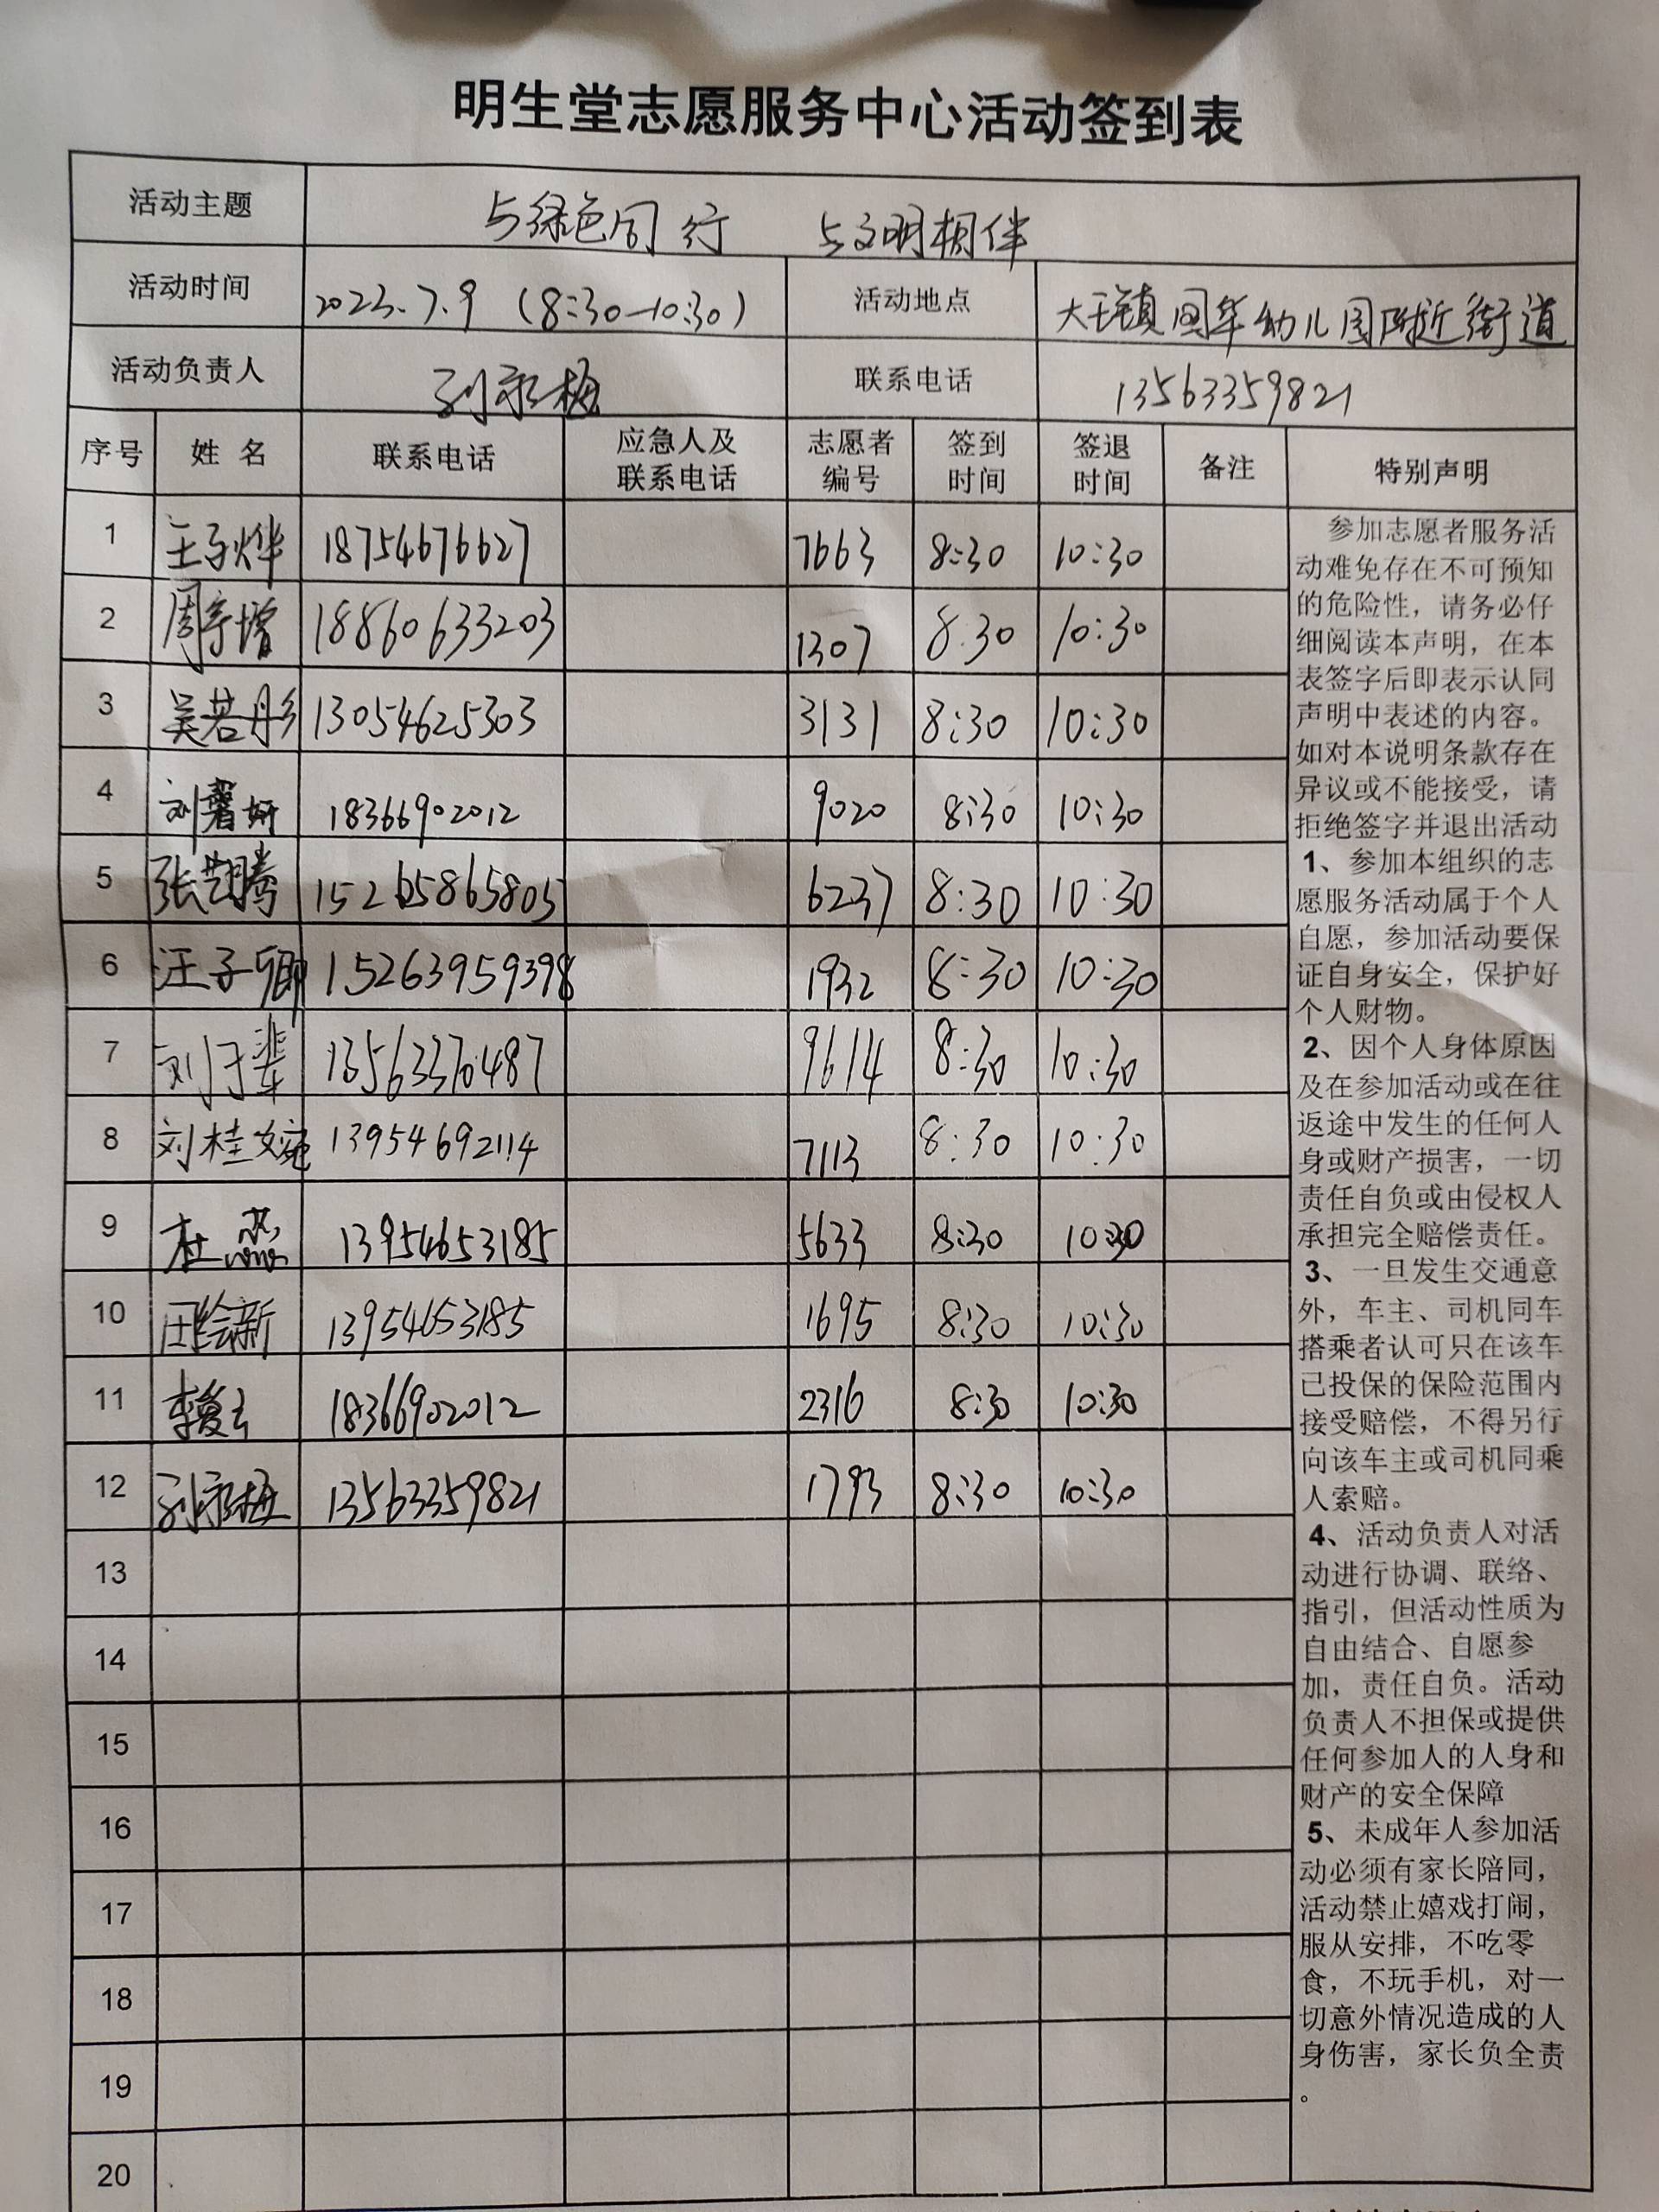 明生堂志愿服务中心活动签到表
活动主题 与绿色同行 与文明相伴
活动时间 2023.7.9 (8:30-10:30) 活动地点 大王镇国华幼儿园附近街道
活动负责人 刘永梅 联系电话 13563359821
序号 姓名 联系电话 应急人及联系电话 志愿者编号 签到时间 签退时间 备注 特别声明
1 王子烨 18754676627 7663 8:30 10:30
2 周宇增 18860633203 1307 8:30 10:30
3 吴若彤 13054625303 3131 8:30 10:30
4 刘馨妍 18366902012 9020 8:30 10:30
5 张 15265865805 6237 8:30 10:30
6 汪子卿 15263959398 1932 8:30 10:30
7 刘子 13563370487 9614 8:30 10:30
8 刘桂婉 13954692114 7113 8:30 10:30
9 杜 13954653185 5633 8:30 10:30
10 13954653185 1695 8:30 10:30
11 李 18366902012 2316 8:30 10:30
12 刘永梅 13563359821 1793 8:30 10:30
13
14
15
16
17
18
19
20
参加志愿者服务活
动难免存在不可预知
的危险性，请务必仔
细阅读本声明，在本
表签字后即表示认同
声明中表述的内容。
如对本说明条款存在
异议或不能接受，请
拒绝签字并退出活动
1、参加本组织的志
愿服务活动属于个人
自愿，参加活动要保
证自身安全，保护好
个人财物。
2、因个人身体原因
及在参加活动或在往
返途中发生的任何人
身或财产损害，一切
责任自负或由侵权人
承担完全赔偿责任。
3、一旦发生交通意
外，车主、司机同车
搭乘者认可只在该车
已投保的保险范围内
接受赔偿，不得另行
向该车主或司机同乘
人索赔。
4、活动负责人对活
动进行协调、联络、
指引，但活动性质为
自由结合、自愿参
加，责任自负。活动
负责人不担保或提供
任何参加人的人身和
财产的安全保障
5、未成年人参加活
动必须有家长陪同，
活动禁止嬉戏打闹，
服从安排，不吃零
食，不玩手机，对一
切意外情况造成的人
身伤害，家长负全责
。